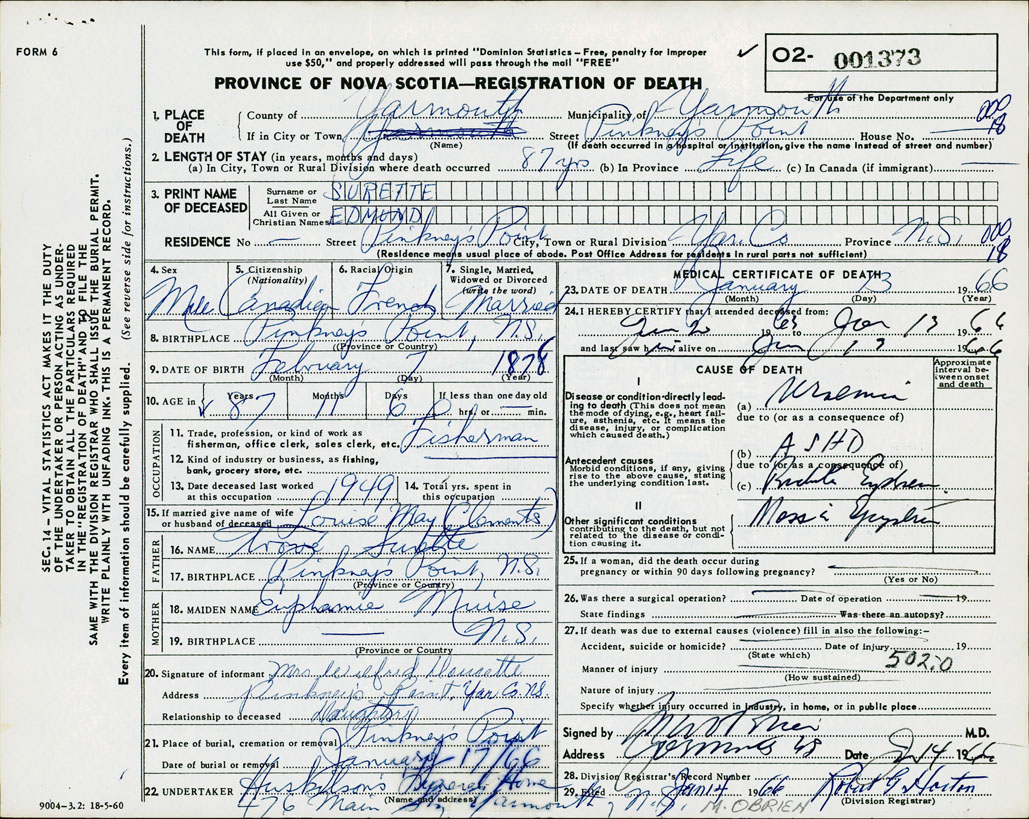 FORM 6
This form, if placed in an envelope, on which is printed "Dominion Statistics – Free, penalty for improper
use $50," and properly addressed will pass through the mail "FREE"
✓ O2- 001373
PROVINCE OF NOVA SCOTIA—REGISTRATION OF DEATH
For use of the Department only
1. PLACE OF DEATH
County of Yarmouth Municipality of Yarmouth
If in City or Town Yarmouth Street Pinkney's Point House No. 000 18
(Name) (If death occurred in a hospital or institution, give the name instead of street and number)
2. LENGTH OF STAY (in years, months and days)
(a) In City, Town or Rural Division where death occurred 87 yrs. (b) In Province Life (c) In Canada (if immigrant) —
3. PRINT NAME OF DECEASED
Surname or Last Name SURETTE
All Given or Christian Names EDMUND
RESIDENCE No. — Street Pinkney's Point City, Town or Rural Division Yar. Co Province N.S. 000 18
(Residence means usual place of abode. Post Office Address for residents in rural parts not sufficient)
4. Sex Male
5. Citizenship (Nationality) Canadian
6. Racial Origin French
7. Single, Married, Widowed or Divorced (write the word) Married
8. BIRTHPLACE Pinkney's Point, N.S.
(Province or Country)
9. DATE OF BIRTH February 7 1878
(Month) (Day) (Year)
10. AGE in ✓ Years 87 Months 11 Days 6 If less than one day old
hrs. or — min.
OCCUPATION
11. Trade, profession, or kind of work as fisherman, office clerk, sales clerk, etc. Fisherman
12. Kind of industry or business, as fishing, bank, grocery store, etc.
13. Date deceased last worked at this occupation 1949
14. Total yrs. spent in this occupation
15. If married give name of wife or husband of deceased Louise May (Clements)
FATHER
16. NAME Surette
17. BIRTHPLACE Pinkney's Point, N.S.
(Province or Country)
MOTHER
18. MAIDEN NAME Euphamie Muise
19. BIRTHPLACE — N.S.
(Province or Country)
20. Signature of informant Doucette
Address Pinkneys Point, Yar. Co. N.S.
Relationship to deceased daughter
21. Place of burial, cremation or removal Pinkney's Point
Date of burial or removal January 17/66
22. UNDERTAKER Huskilson's Funeral Home
(Name and address)
476 Main St, Yarmouth, N.S.
9004–3.2: 18-5-60
MEDICAL CERTIFICATE OF DEATH
23. DATE OF DEATH January 13 1966
(Month) (Day) (Year)
24. I HEREBY CERTIFY that I attended deceased from:
Jan 2 1965 to Jan 13 1966
and last saw him alive on Jan 13 1966
CAUSE OF DEATH
Approximate interval between onset and death
I
Disease or condition directly leading to death (This does not mean the mode of dying, e.g., heart failure, asthenia, etc. It means the disease, injury, or complication which caused death.)
(a) Uraemia
due to (or as a consequence of)
Antecedent causes
Morbid conditions, if any, giving rise to the above cause, stating the underlying condition last.
(b) ASHD
due to (or as a consequence of)
(c)
II
Other significant conditions contributing to the death, but not related to the disease or condition causing it.
25. If a woman, did the death occur during pregnancy or within 90 days following pregnancy?
(Yes or No)
26. Was there a surgical operation? Date of operation 19
State findings Was there an autopsy?
27. If death was due to external causes (violence) fill in also the following:–
Accident, suicide or homicide? Date of injury 19
(State which)
502.0
Manner of injury
(How sustained)
Nature of injury
Specify whether injury occurred in industry, in home, or in public place
Signed by M.D.
Address Yarmouth NS Date J 14 1966
28. Division Registrar's Record Number
29. Filed Jan 14 1966 Robert G. Horton
(Division Registrar)
M. OBRIEN
SEC. 14 – VITAL STATISTICS ACT MAKES IT THE DUTY
OF THE UNDERTAKER OR PERSON ACTING AS UNDERTAKER TO OBTAIN ALL THE PARTICULARS REQUIRED
IN THE "REGISTRATION OF DEATH" AND TO FILE THE
SAME WITH THE DIVISION REGISTRAR WHO SHALL ISSUE THE BURIAL PERMIT.
WRITE PLAINLY WITH UNFADING INK. THIS IS A PERMANENT RECORD.
Every item of information should be carefully supplied. (See reverse side for instructions.)